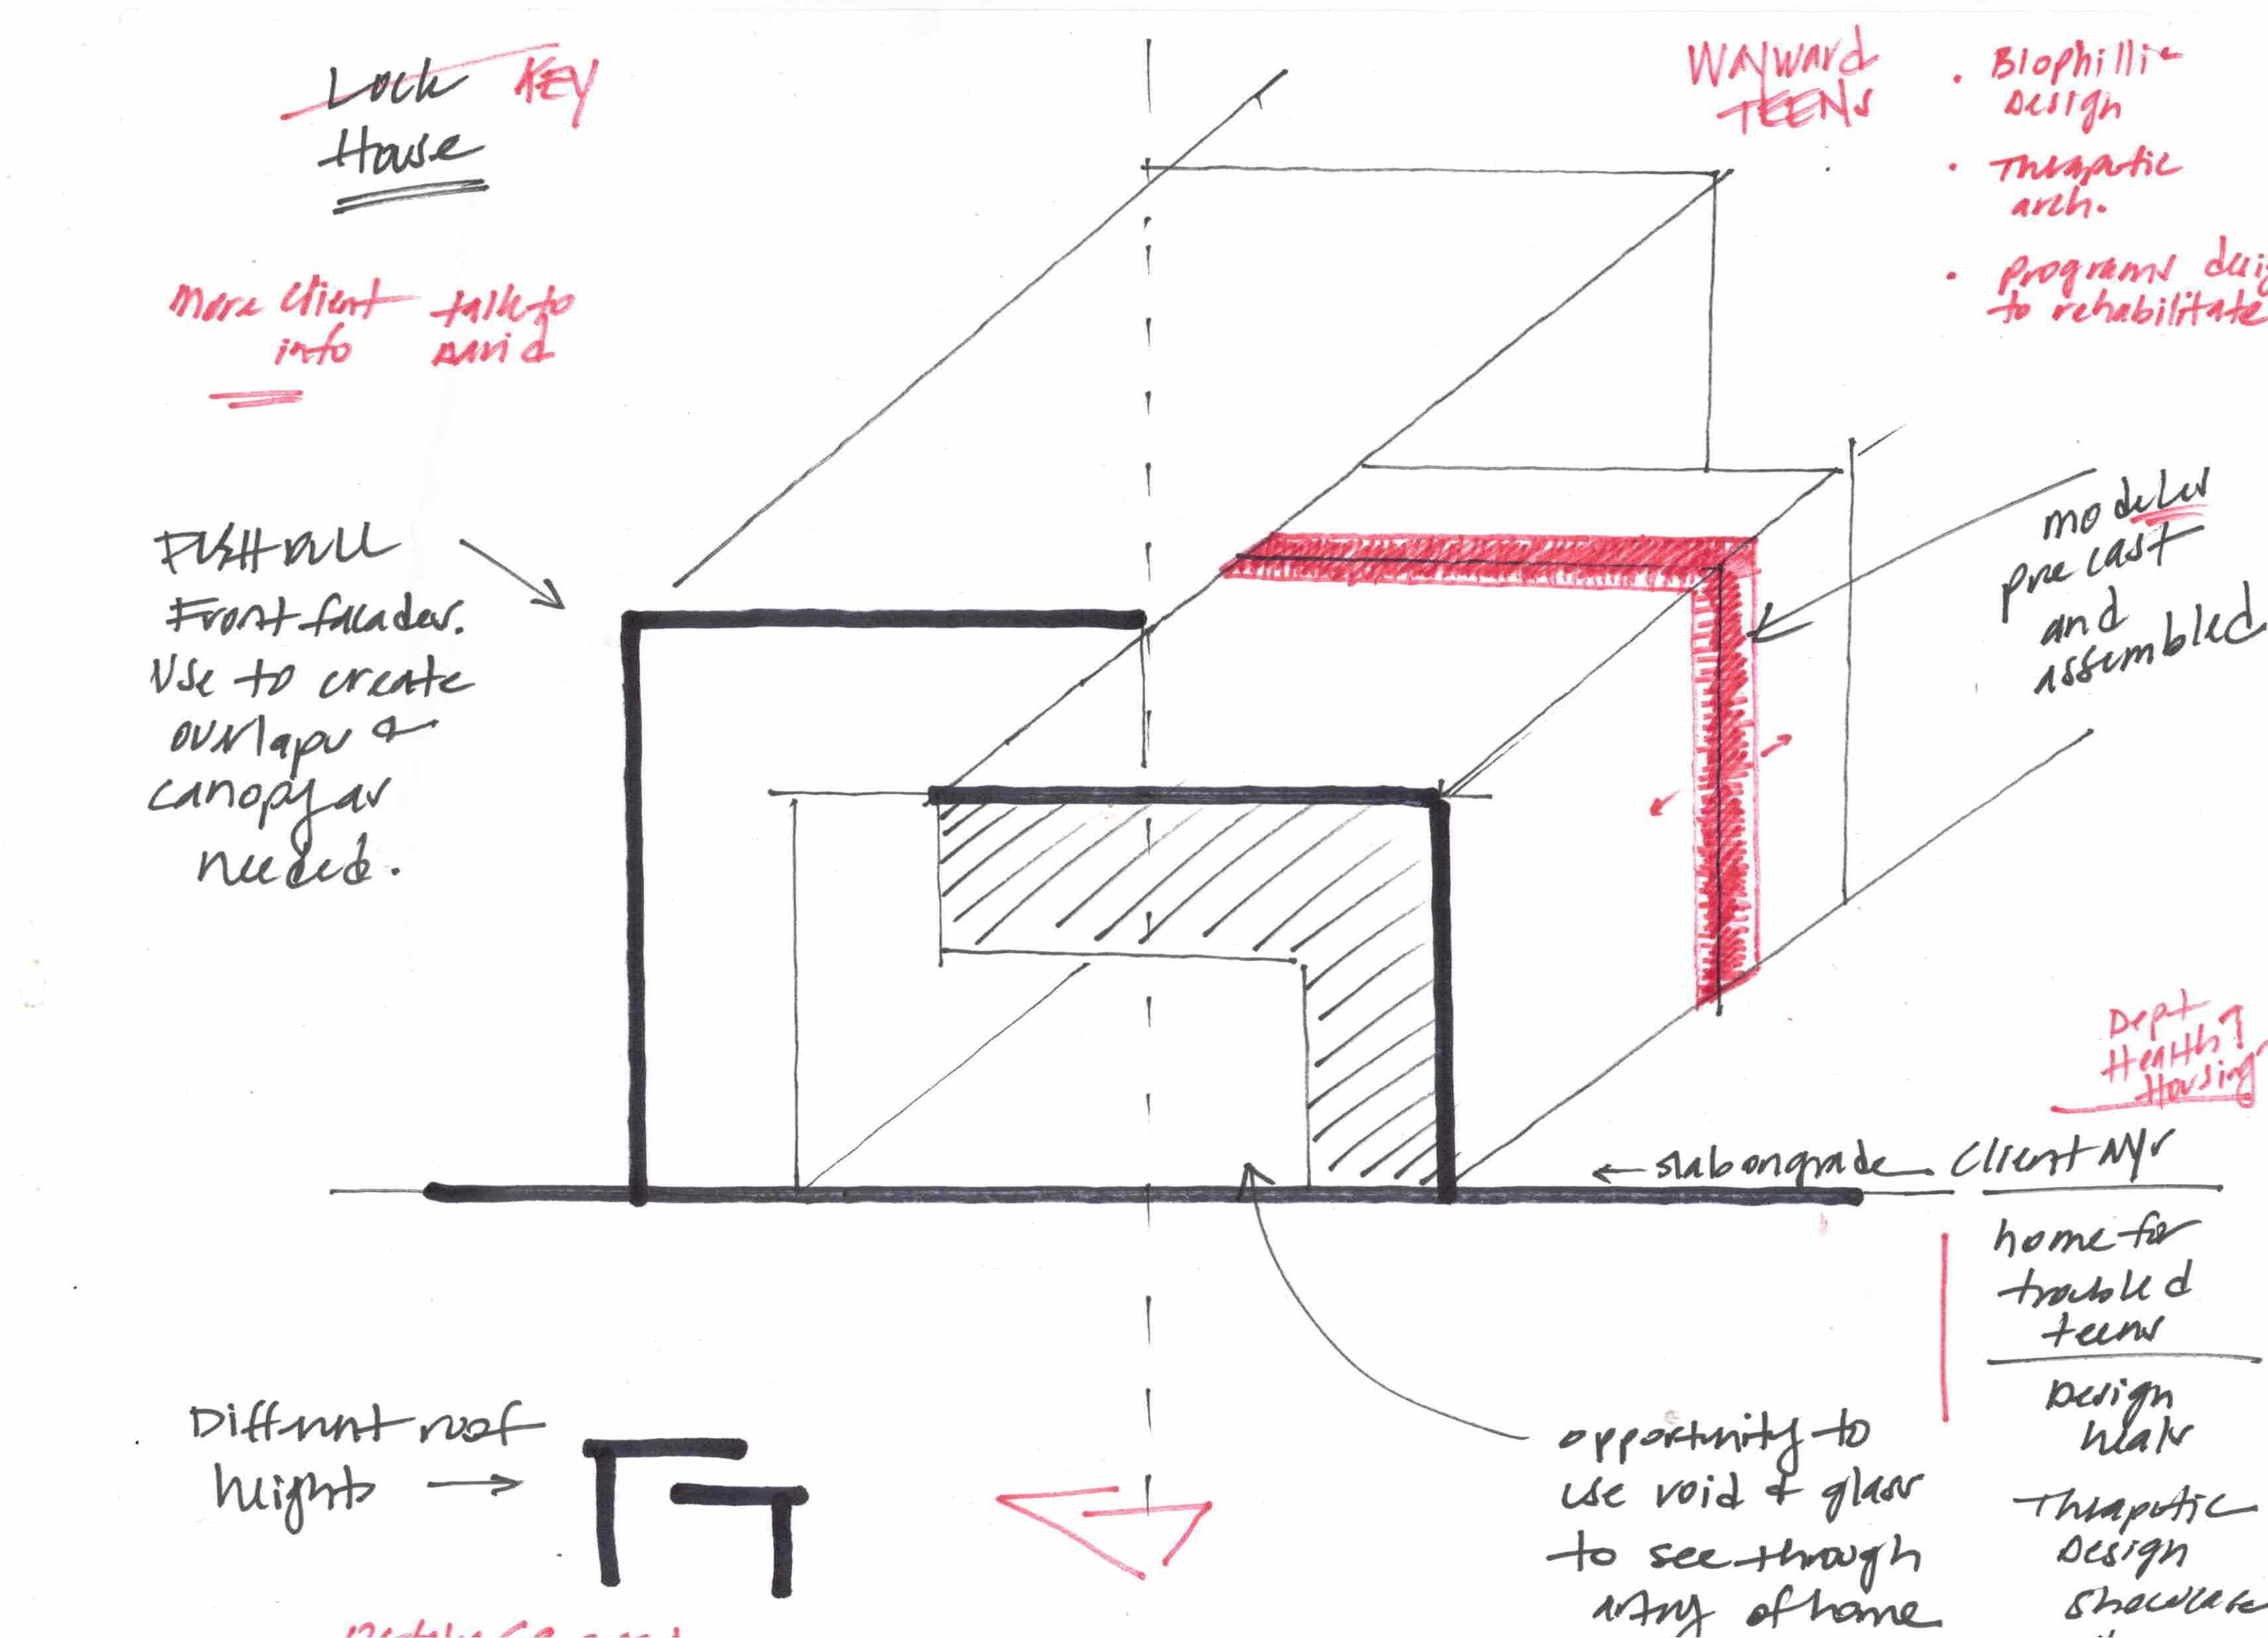 Lock KEY
House
more client talk to
info David
PUSH PULL
Front facades.
Use to create
overlaps &
canopy as
needed.
Different roof
heights
WAYWARD
TEENS
• Biophillic
Design
• Theraputic
arch.
• programs
to rehabilitate
modules
precast
and
assembled
Dept
Health ?
Housing
slab on grade
Client NYS
home for
troubled
teens
Design
heals
Theraputic
Design
showcase
opportunity to
use void & glass
to see through
entry of home